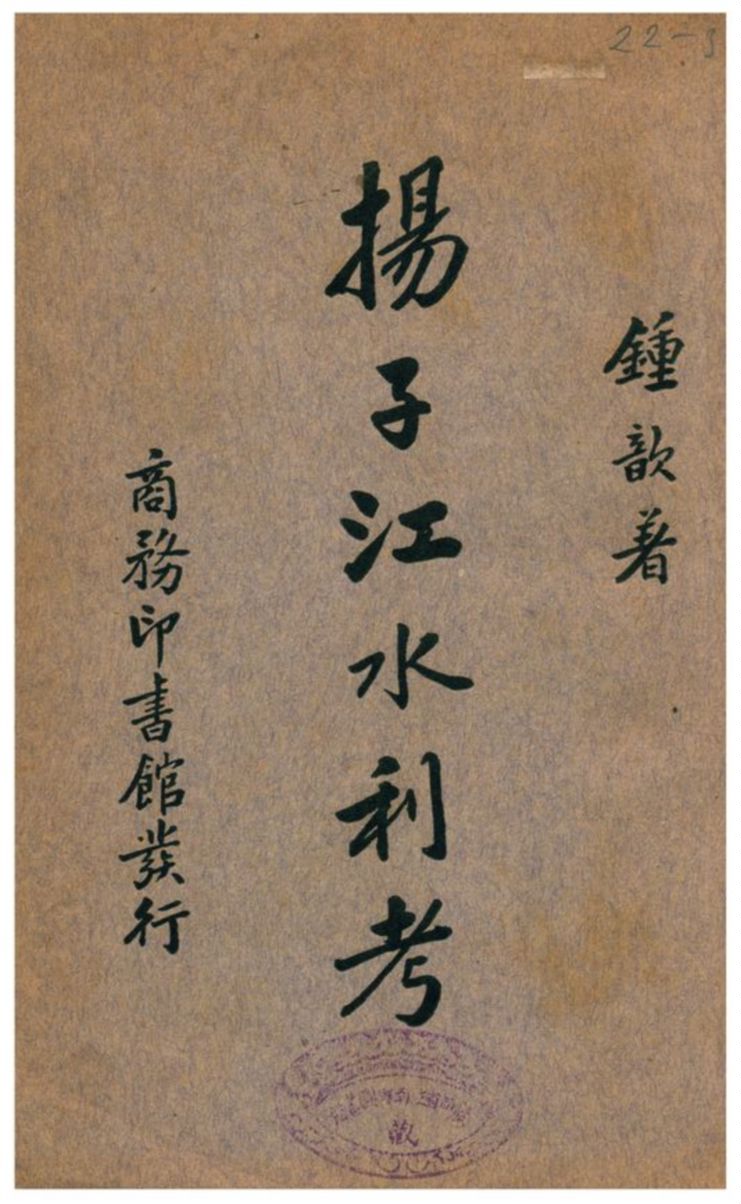 22-
鍾歆著
揚子江水利考
商務印書館發行